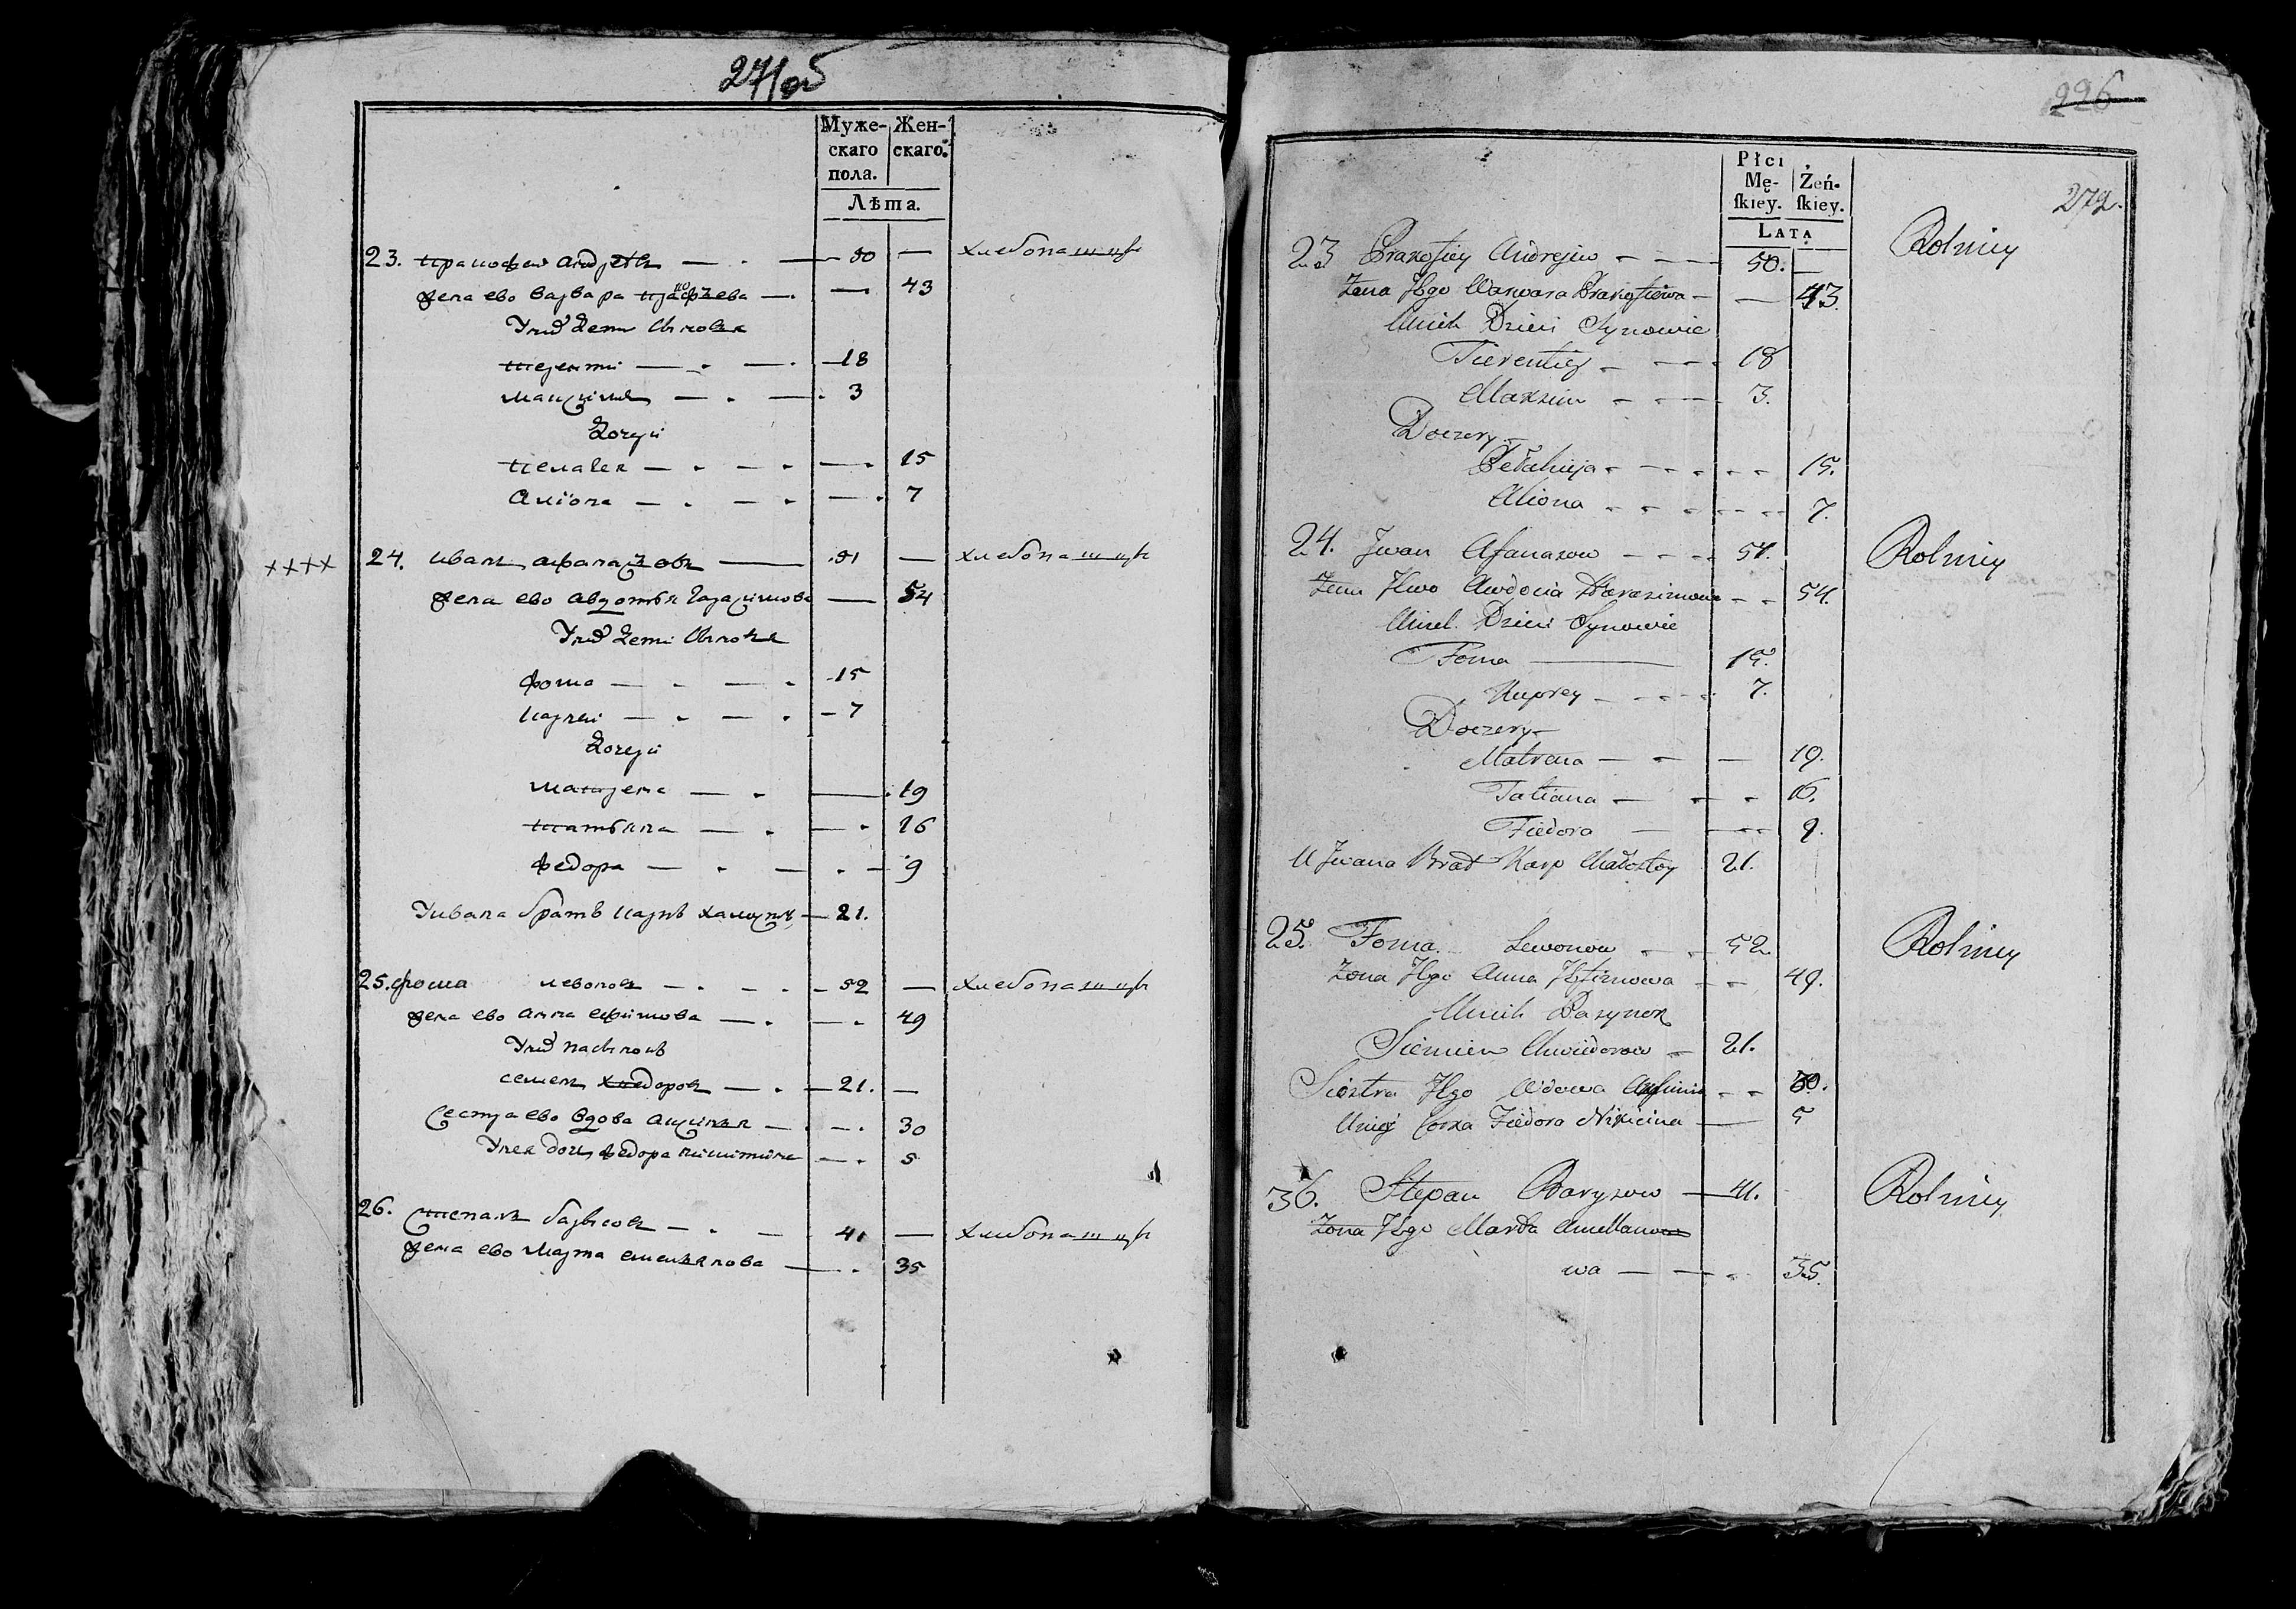 271об
Муже-
скаго
пола.
Жен-
скаго.
Лѣта.
23. Пракофеи андреевъ — 50 — хлебопашцы
жена ево варвара прокофьева — 43
Унихъ дети Сыновья
терентии — 18
максимъ — 3
Дочери
пелагея — 15
алiона — 7
++++ 24. иванъ афаназовъ — 51 — хлебопашцы
жена ево авдотья гарасимова — 54
Унихъ дети Сыновья
фома — 15
карпеи — 7
Дочери
матрена — 19
татьяна — 16
федора — 9
Уивана братъ карпъ — 21.
25. фома левоновъ — 52 — хлебопашцы
жена ево анна ефимова — 49
Унихъ пасынокъ
семенъ хведоровъ — 21. —
Сестра ево вдова — 30
Унея дочь федора никитина — 5
26. Степанъ барысовъ — 41 — хлебопашцы
жена ево марта емельянова — 35
226
272.
Płci
Mę-
ſkiey.
Żeń-
ſkiey.
LATA
23 Prakofiey Andrejew — 50. — Rolnicy
Zona Jego Warwara Prakofiewa — 43.
Unich Dzieci Synowie
Tierentiey — 18
Maxim — 3.
Doczery
Pełahieja — 15.
Aliona — 7.
24. Jwan Afanazow — 51. Rolnicy
Zena Jewo Awdocia Harazimowa — 54.
Unich Dzieci Synowie
Foma — 15.
Kuprey — 7.
Doczery
Matrena — 19.
Tatiana — 16.
Fiedora — 9.
U Jwana Brat Karp 21.
25. Foma Lewonow — 52 Rolnicy
Zona Jego Anna Jefimowa — 49.
Unich Pasynok
Siemien Chwiedorow — 21.
Siostra Jego Wdowa — 30.
Uniej Corka Fiedora Nikicina — 5
36. Stepan Barysow — 41. Rolnicy
Zona Jego Marta Amellanow
wa — 35.